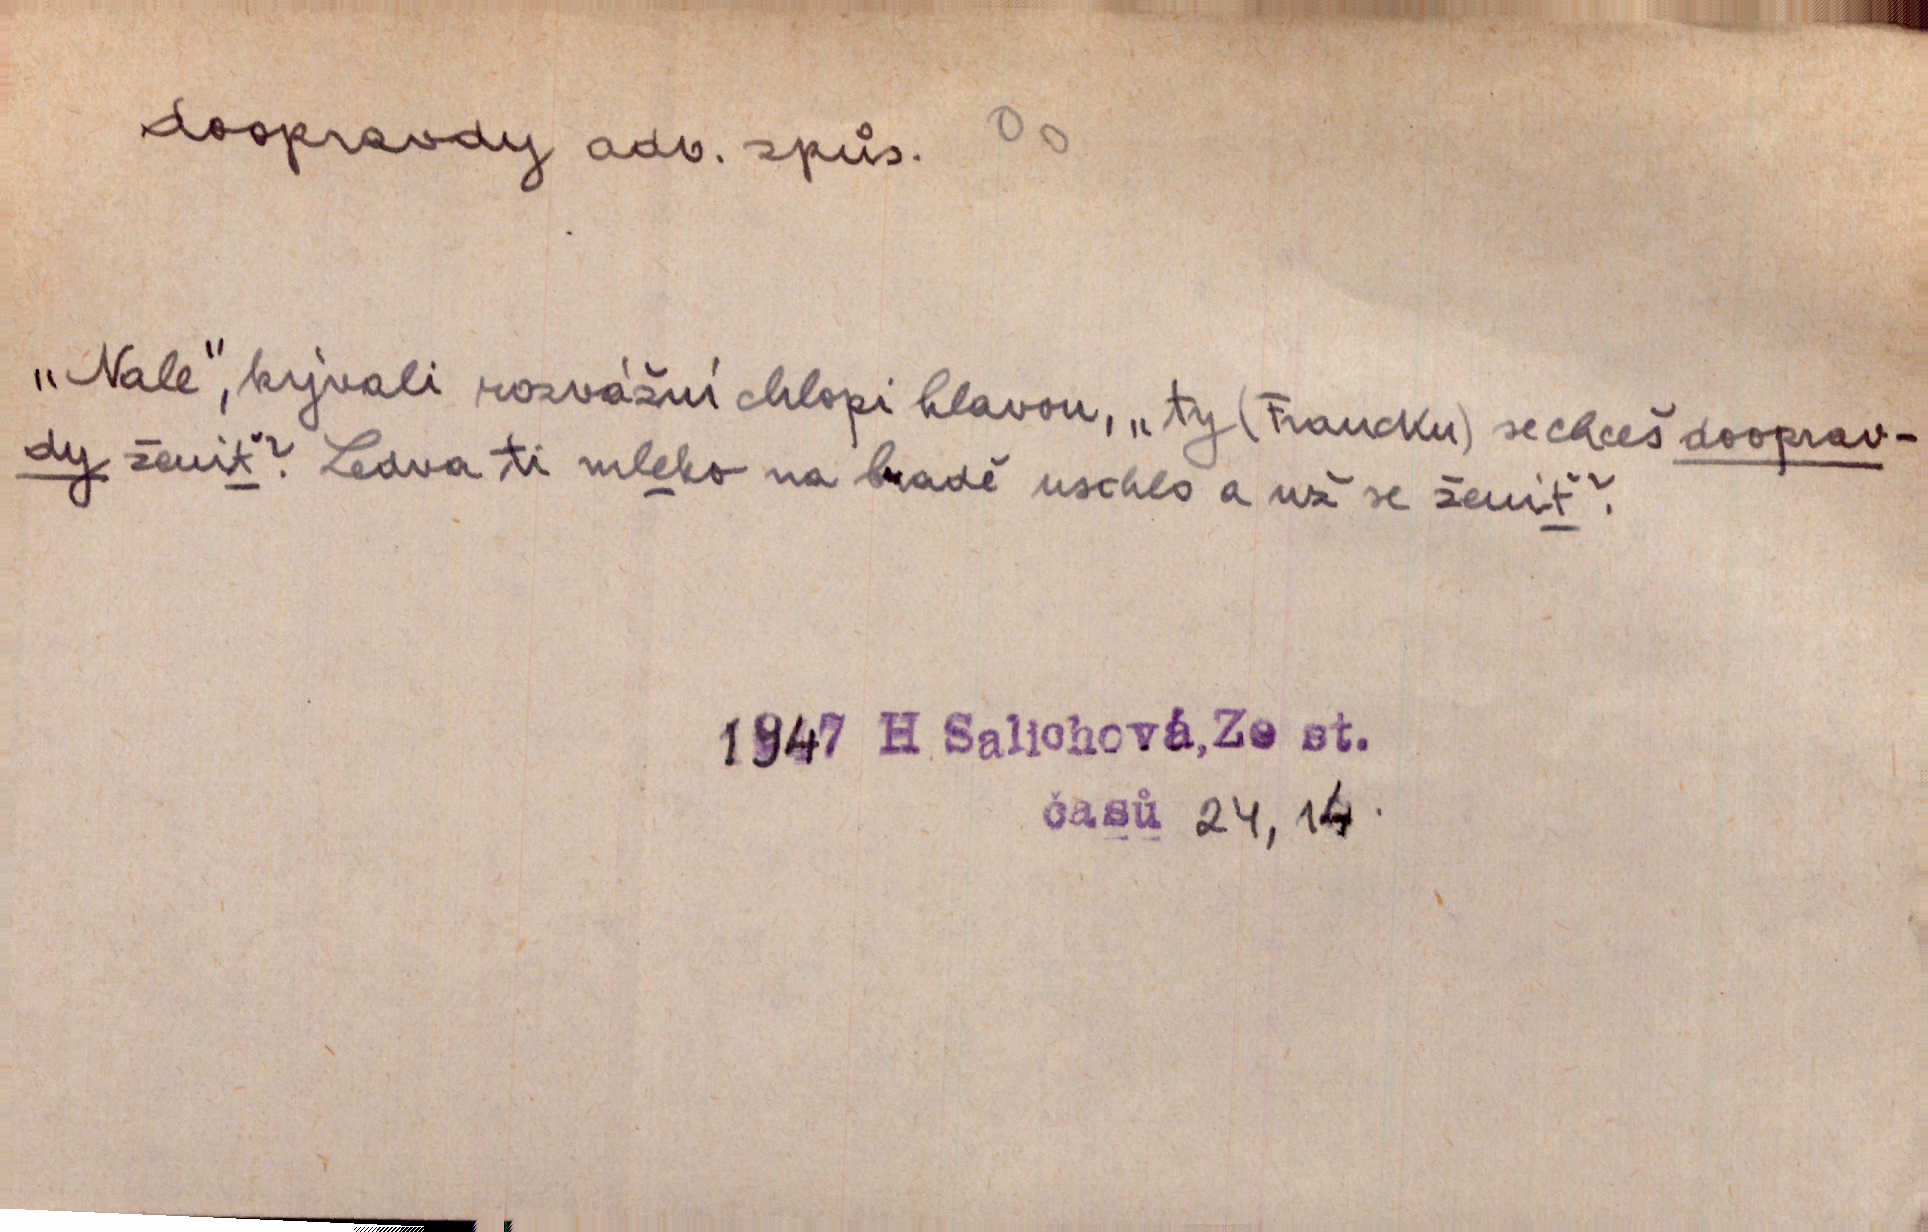 doopravdy adv. způs.
„Nale", kývali rozvážní chlopi hlavou, „ty (Francku) se chceš dooprav-
dy ženiť? Ledva ti mleko na bradě uschlo a už se ženiť?
1947 H Salichová, Ze st.
časů 24, 14.